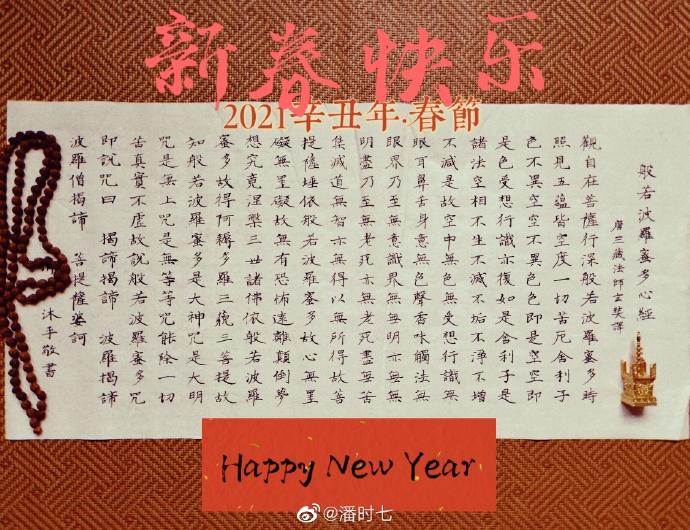 新春快乐
2021辛丑年.春節
般若波羅蜜多心經
唐三藏法師玄奘譯
觀自在菩薩行深般若波羅蜜多時
照見五蘊皆空度一切苦厄舍利子
色不異空空不異色色即是空空即
是色受想行識亦復如是舍利子是
諸法空相不生不滅不垢不淨不增
不減是故空中無色無受想行識無
眼耳鼻舌身意無色聲香味觸法無
眼界乃至無意識界無無明亦無無
明盡乃至無老死亦無老死盡無苦
集滅道無智亦無得以無所得故菩
提薩埵依般若波羅蜜多故心無罣
礙無罣礙故無有恐怖遠離顛倒夢
想究竟涅槃三世諸佛依般若波羅
蜜多故得阿耨多羅三藐三菩提故
知般若波羅蜜多是大神咒是大明
咒是無上咒是無等等咒能除一切
苦真實不虛故說般若波羅蜜多咒
即說咒曰 揭諦揭諦 波羅揭諦
波羅僧揭諦 菩提薩婆訶
沐手敬書
Happy New Year
@潘时七